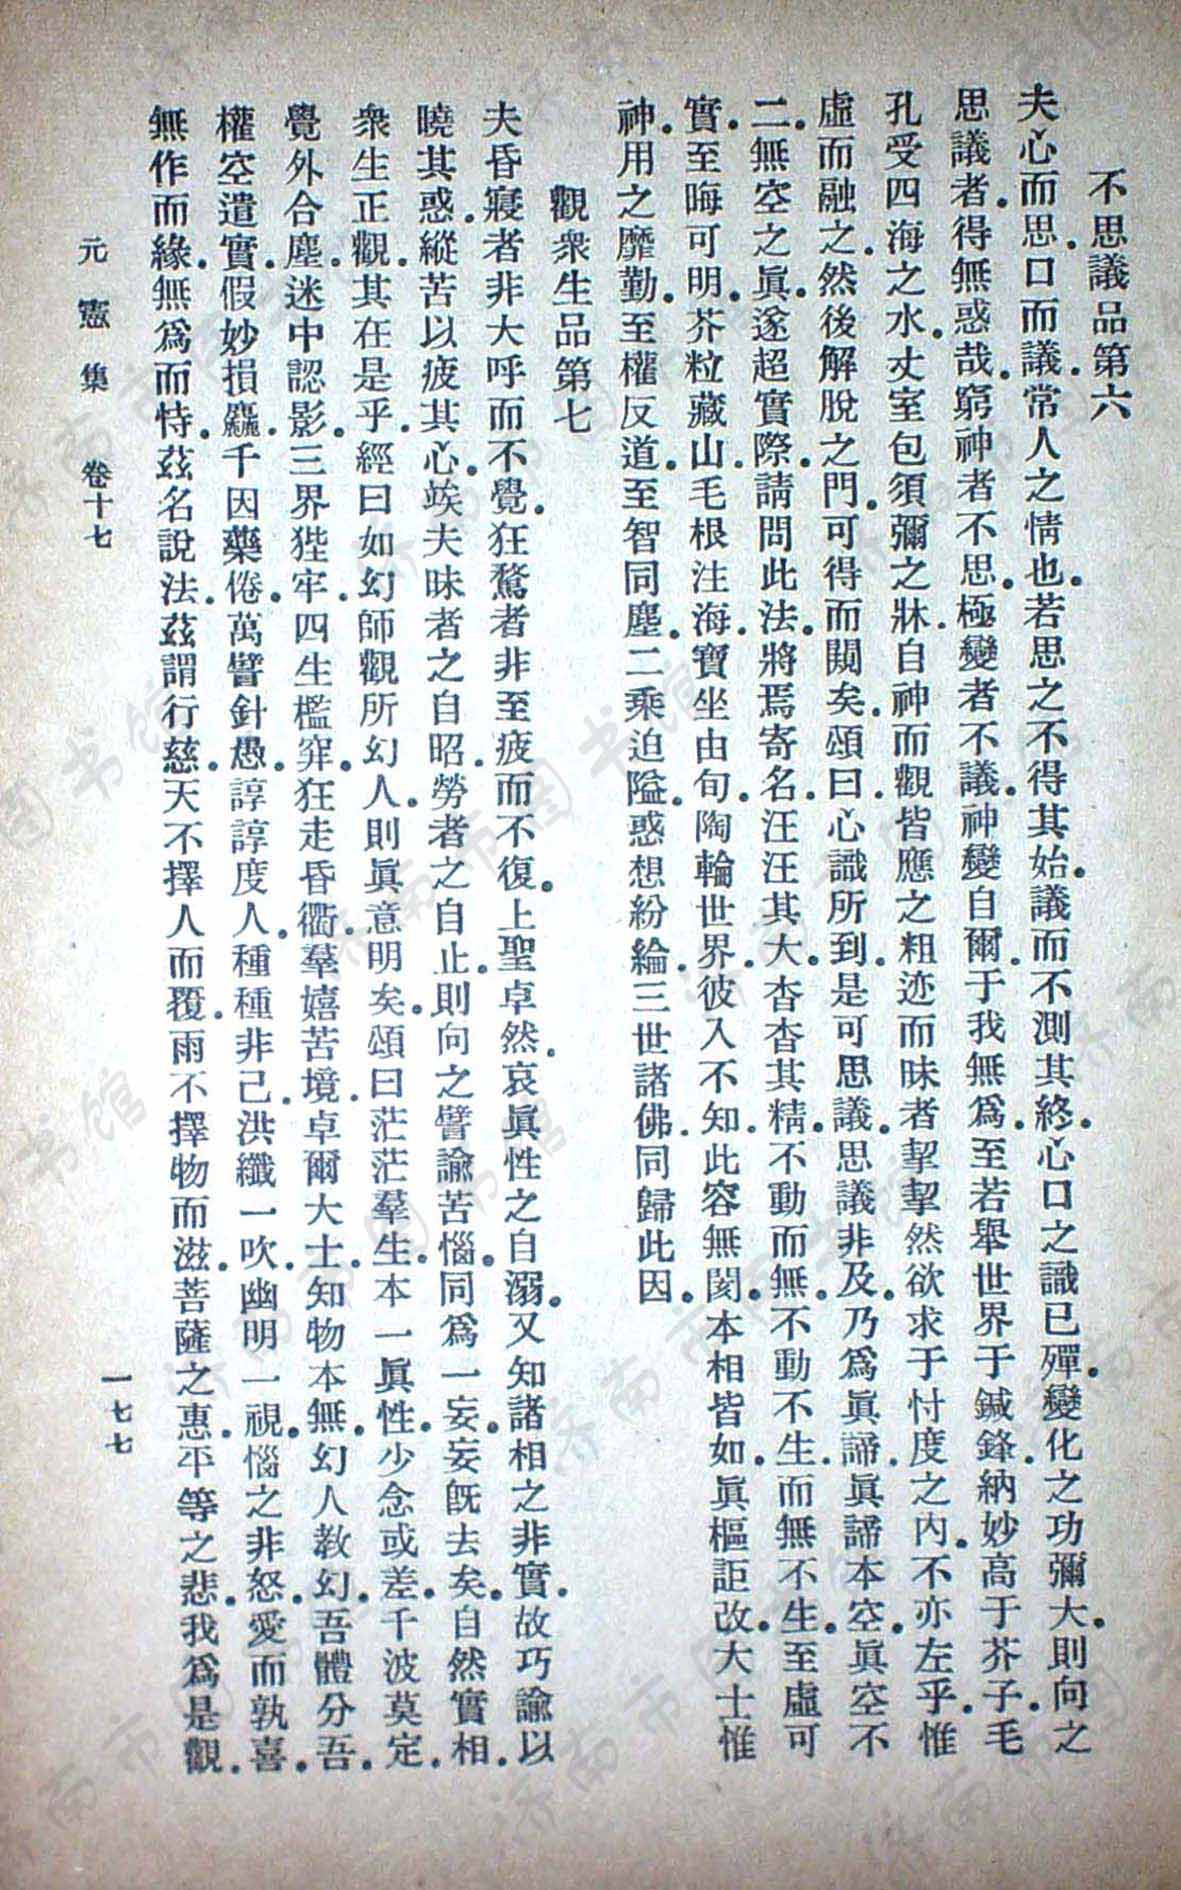 不思議品第六
夫心而思。口而議。常人之情也。若思之不得其始。議而不測其終。心口之識已殫。變化之功彌大。則向之
思議者。得無惑哉。窮神者不思。極變者不議。神變自爾。于我無爲。至若舉世界于鍼鋒。納妙高于芥子。毛
孔受四海之水。丈室包須彌之牀。自神而觀。皆應之粗迹。而昧者挈挈然欲求于忖度之內。不亦左乎。惟
虛而融之。然後解脫之門。可得而闚矣。頌曰。心識所到。是可思議。思議非及。乃爲眞諦。眞諦本空。眞空不
二。無空之眞。遂超實際。請問此法。將焉寄名。汪汪其大。杳杳其精。不動而無不動。不生而無不生。至虛可
實。至晦可明。芥粒藏山。毛根注海。寶坐由旬。陶輪世界。彼入不知。此容無閡。本相皆如。眞樞詎改。大士惟
神。用之靡勤。至權反道。至智同塵。二乘迫隘。惑想紛綸。三世諸佛。同歸此因。
觀衆生品第七
夫昏寢者非大呼而不覺。狂騖者非至疲而不復。上聖卓然。哀眞性之自溺。又知諸相之非實。故巧諭以
曉其惑。縱苦以疲其心。竢夫昧者之自昭。勞者之自止。則向之譬諭苦惱。同爲一妄。妄旣去矣。自然實相。
衆生正觀。其在是乎。經曰如幻師觀所幻人。則眞意明矣。頌曰茫茫羣生。本一眞性。少念或差。千波莫定。
覺外合塵。迷中認影。三界狴牢。四生檻穽。狂走昏衢。羣嬉苦境。卓爾大士。知物本無。幻人教幻。吾體分吾。
權空遣實。假妙損麤。千因藥倦。萬譬針愚。諄諄度人。種種非己。洪纖一吹。幽明一視。惱之非怒。愛而孰喜。
無作而緣。無爲而恃。茲名說法。茲謂行慈。天不擇人而覆。雨不擇物而滋。菩薩之惠。平等之悲。我爲是觀。
元憲集 卷十七 一七七
济南市图书馆